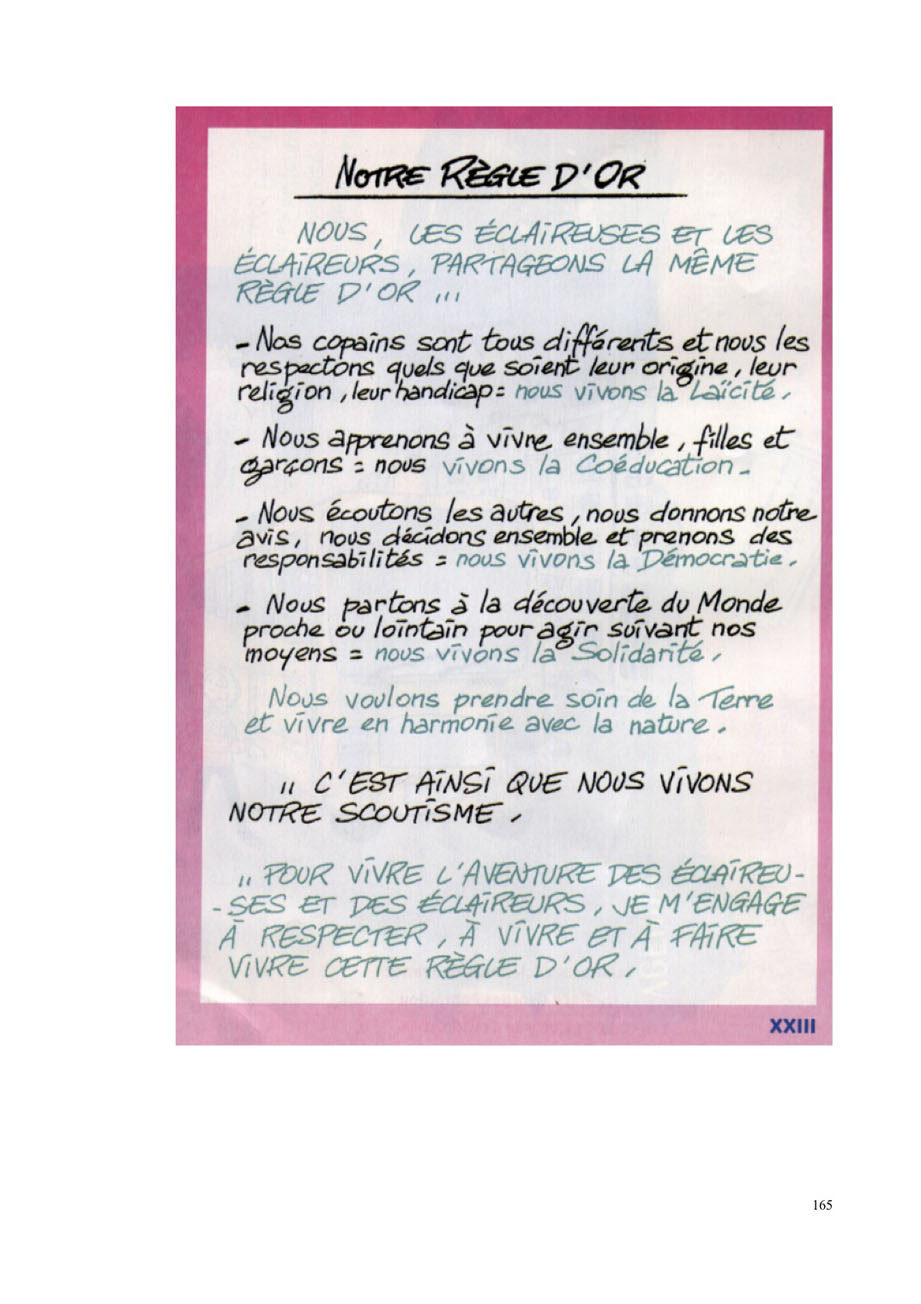 NOTRE RÈGLE D'OR
NOUS, LES ÉCLAIREUSES ET LES
ÉCLAIREURS, PARTAGEONS LA MÊME
RÈGLE D'OR ...
- Nos copains sont tous différents et nous les
respectons quels que soient leur origine, leur
religion, leur handicap = nous vivons la Laïcité.
- Nous apprenons à vivre ensemble, filles et
garçons = nous vivons la Coéducation.
- Nous écoutons les autres, nous donnons notre
avis, nous décidons ensemble et prenons des
responsabilités = nous vivons la Démocratie.
- Nous partons à la découverte du Monde
proche ou lointain pour agir suivant nos
moyens = nous vivons la Solidarité.
Nous voulons prendre soin de la Terre
et vivre en harmonie avec la nature.
,, C'EST AINSI QUE NOUS VIVONS
NOTRE SCOUTISME.
,, POUR VIVRE L'AVENTURE DES ÉCLAIREU-
-SES ET DES ÉCLAIREURS, JE M'ENGAGE
À RESPECTER, À VIVRE ET À FAIRE
VIVRE CETTE RÈGLE D'OR.
XXIII
165